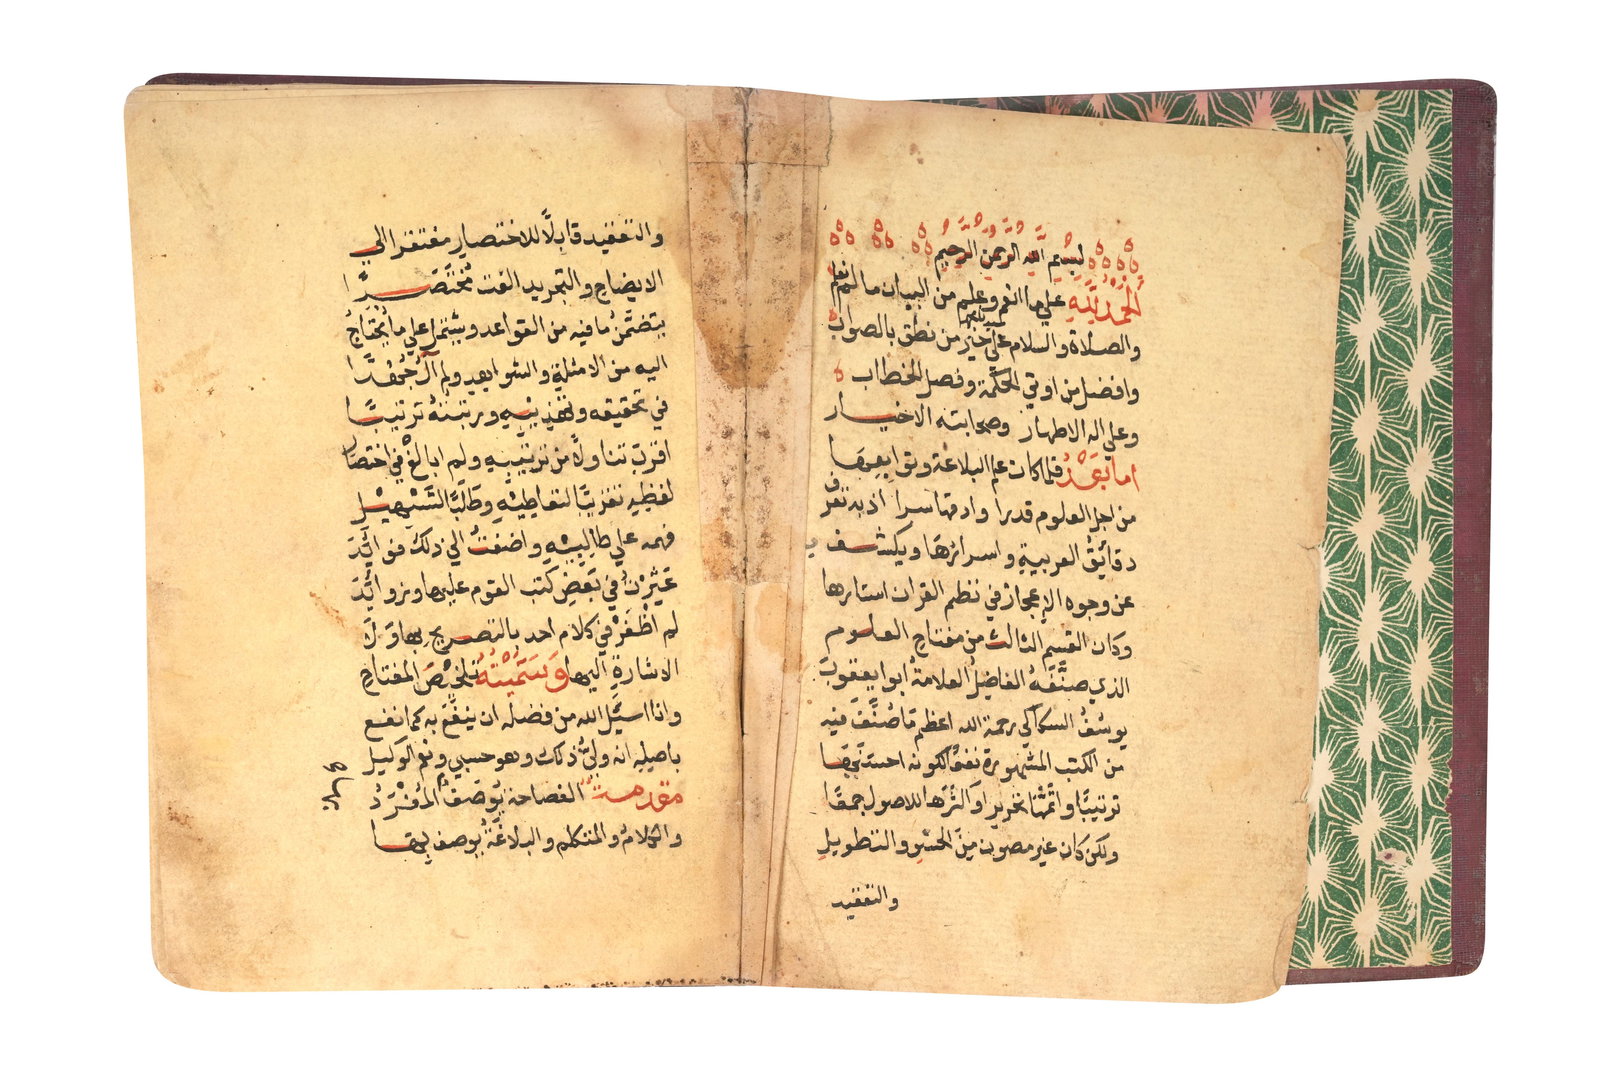 بسم الله الرحمن الرحيم
الحمد لله علي ما انعم وعلم من البيان ما لم نعلم
والصلاة والسلام علي سيدنا محمد خير من نطق بالصواب
وافضل من اوتي الحكمة وفصل الخطاب
وعلي اله الاطهار وصحابته الاخيار
اما بعد فلما كان علم البلاغة وتوابعها
من اجل العلوم قدرا وادقها سرا اذ به تعرف
دقائق العربية واسرارها ويكشف
عن وجوه الإعجاز في نظم القران استارها
وكان القسم الثالث من مفتاح العلوم
الذي صنفه الفاضل العلامة ابو يعقوب
يوسف السكاكي رحمة الله اعظم ما صنف فيه
من الكتب المشهورة نفعا لكونه احسنها
ترتيبا واتمها تحريرا واكثرها للاصول جمعا
ولكن كان غير مصون من الحشو والتطويل
والتعقيد
والتعقيد قابلا للاختصار مفتقرا الي
الايضاح والتجريد الفت مختصرا
يتضمن ما فيه من القواعد ويشتمل علي ما يحتاج
اليه من الامثلة والشواهد ولم آل جهدا
في تحقيقه وتهذيبه ورتبته ترتيبا
اقرب تناولا من ترتيبه ولم ابالغ في اختصار
لفظه تقريبا لتعاطيه وطلبا لتسهيل
فهمه علي طالبيه واضفت الي ذلك فوائد
عثرت في بعض كتب القوم عليها وزوائد
لم اظفر في كلام احد بالتصريح بها ولا
الاشارة اليها وسميته تلخيص المفتاح
وانا اسئل الله من فضله ان ينفع به كما نفع
باصله انه ولي ذلك وهو حسبي ونعم الوكيل
مقدمة الفصاحة يوصف بها المفرد
والكلام والمتكلم والبلاغة يوصف بها